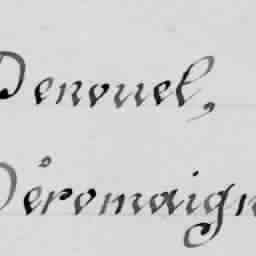 Denouel,
Déromaign